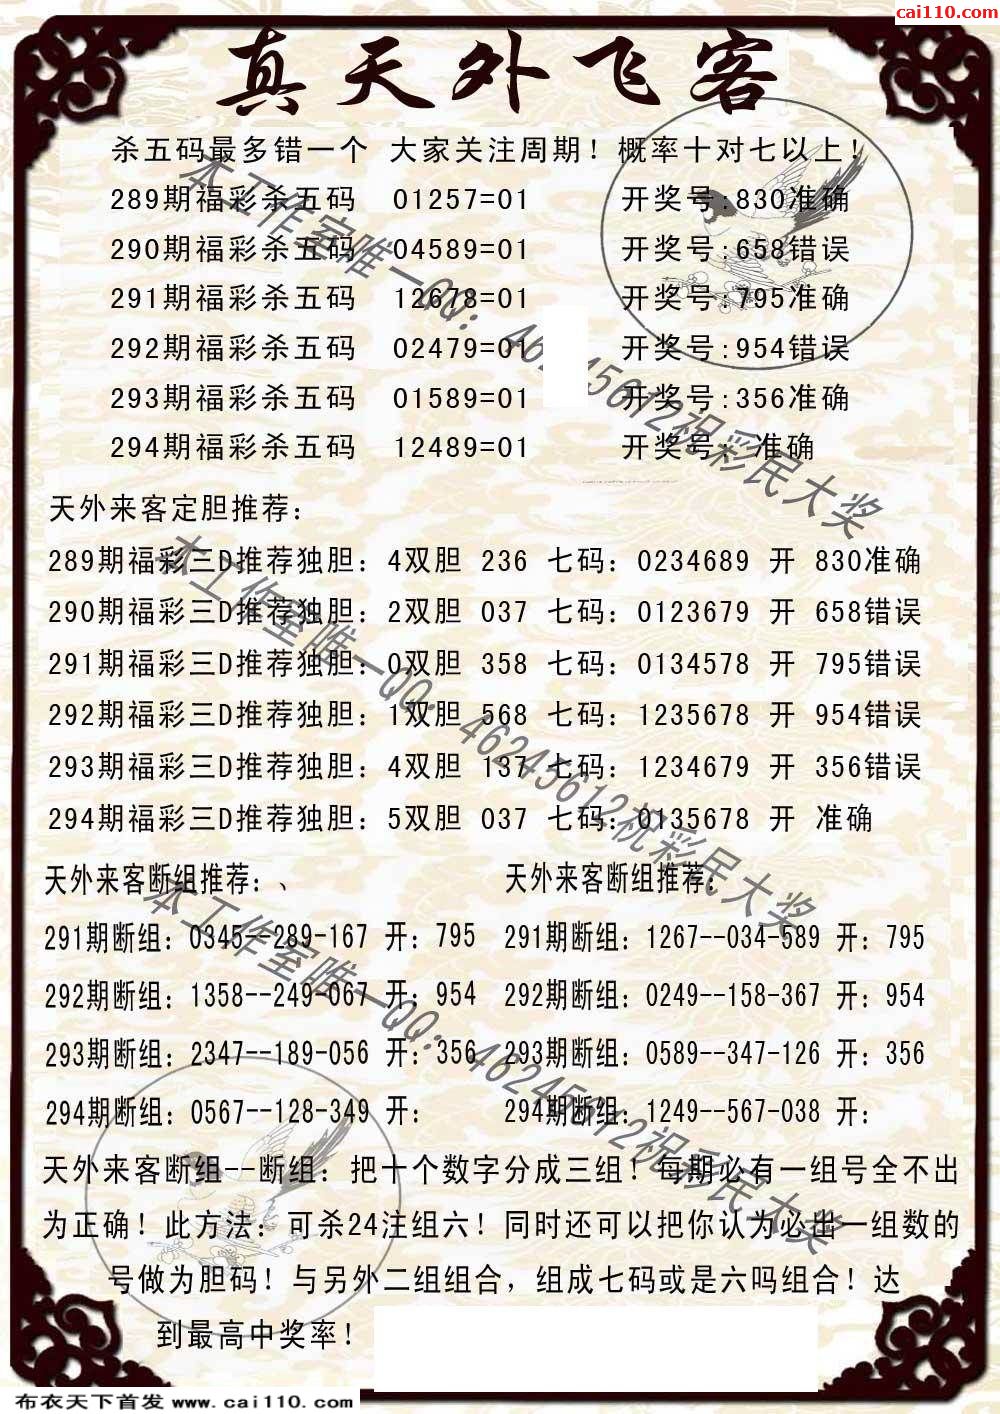 cai110.com
真天外飞客
杀五码最多错一个 大家关注周期！概率十对七以上！
289期福彩杀五码 01257=01 开奖号:830准确
290期福彩杀五码 04589=01 开奖号:658错误
291期福彩杀五码 12678=01 开奖号:795准确
292期福彩杀五码 02479=01 开奖号:954错误
293期福彩杀五码 01589=01 开奖号:356准确
294期福彩杀五码 12489=01 开奖号: 准确
天外来客定胆推荐：
289期福彩三D推荐独胆：4双胆 236 七码：0234689 开 830准确
290期福彩三D推荐独胆：2双胆 037 七码：0123679 开 658错误
291期福彩三D推荐独胆：0双胆 358 七码：0134578 开 795错误
292期福彩三D推荐独胆：1双胆 568 七码：1235678 开 954错误
293期福彩三D推荐独胆：4双胆 137 七码：1234679 开 356错误
294期福彩三D推荐独胆：5双胆 037 七码：0135678 开 准确
天外来客断组推荐：、 天外来客断组推荐：
291期断组：0345--289-167 开：795 291期断组：1267--034-589 开：795
292期断组：1358--249-067 开：954 292期断组：0249--158-367 开：954
293期断组：2347--189-056 开：356 293期断组：0589--347-126 开：356
294期断组：0567--128-349 开： 294期断组：1249--567-038 开：
天外来客断组--断组：把十个数字分成三组！每期必有一组号全不出
为正确！此方法：可杀24注组六！同时还可以把你认为必出一组数的
号做为胆码！与另外二组组合，组成七码或是六吗组合！达
到最高中奖率！
本工作室唯一QQ：46245612祝彩民大奖
本工作室唯一QQ：46245612祝彩民大奖
本工作室唯一QQ：46245612祝彩民大奖
布衣天下首发 www.cai110.com